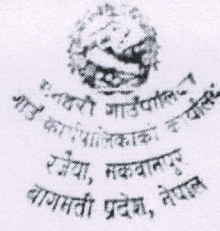 गाउँपालिका
गाउँ कार्यपालिकाको कार्यालय
रजैया, मकवानपुर
बागमती प्रदेश, नेपाल